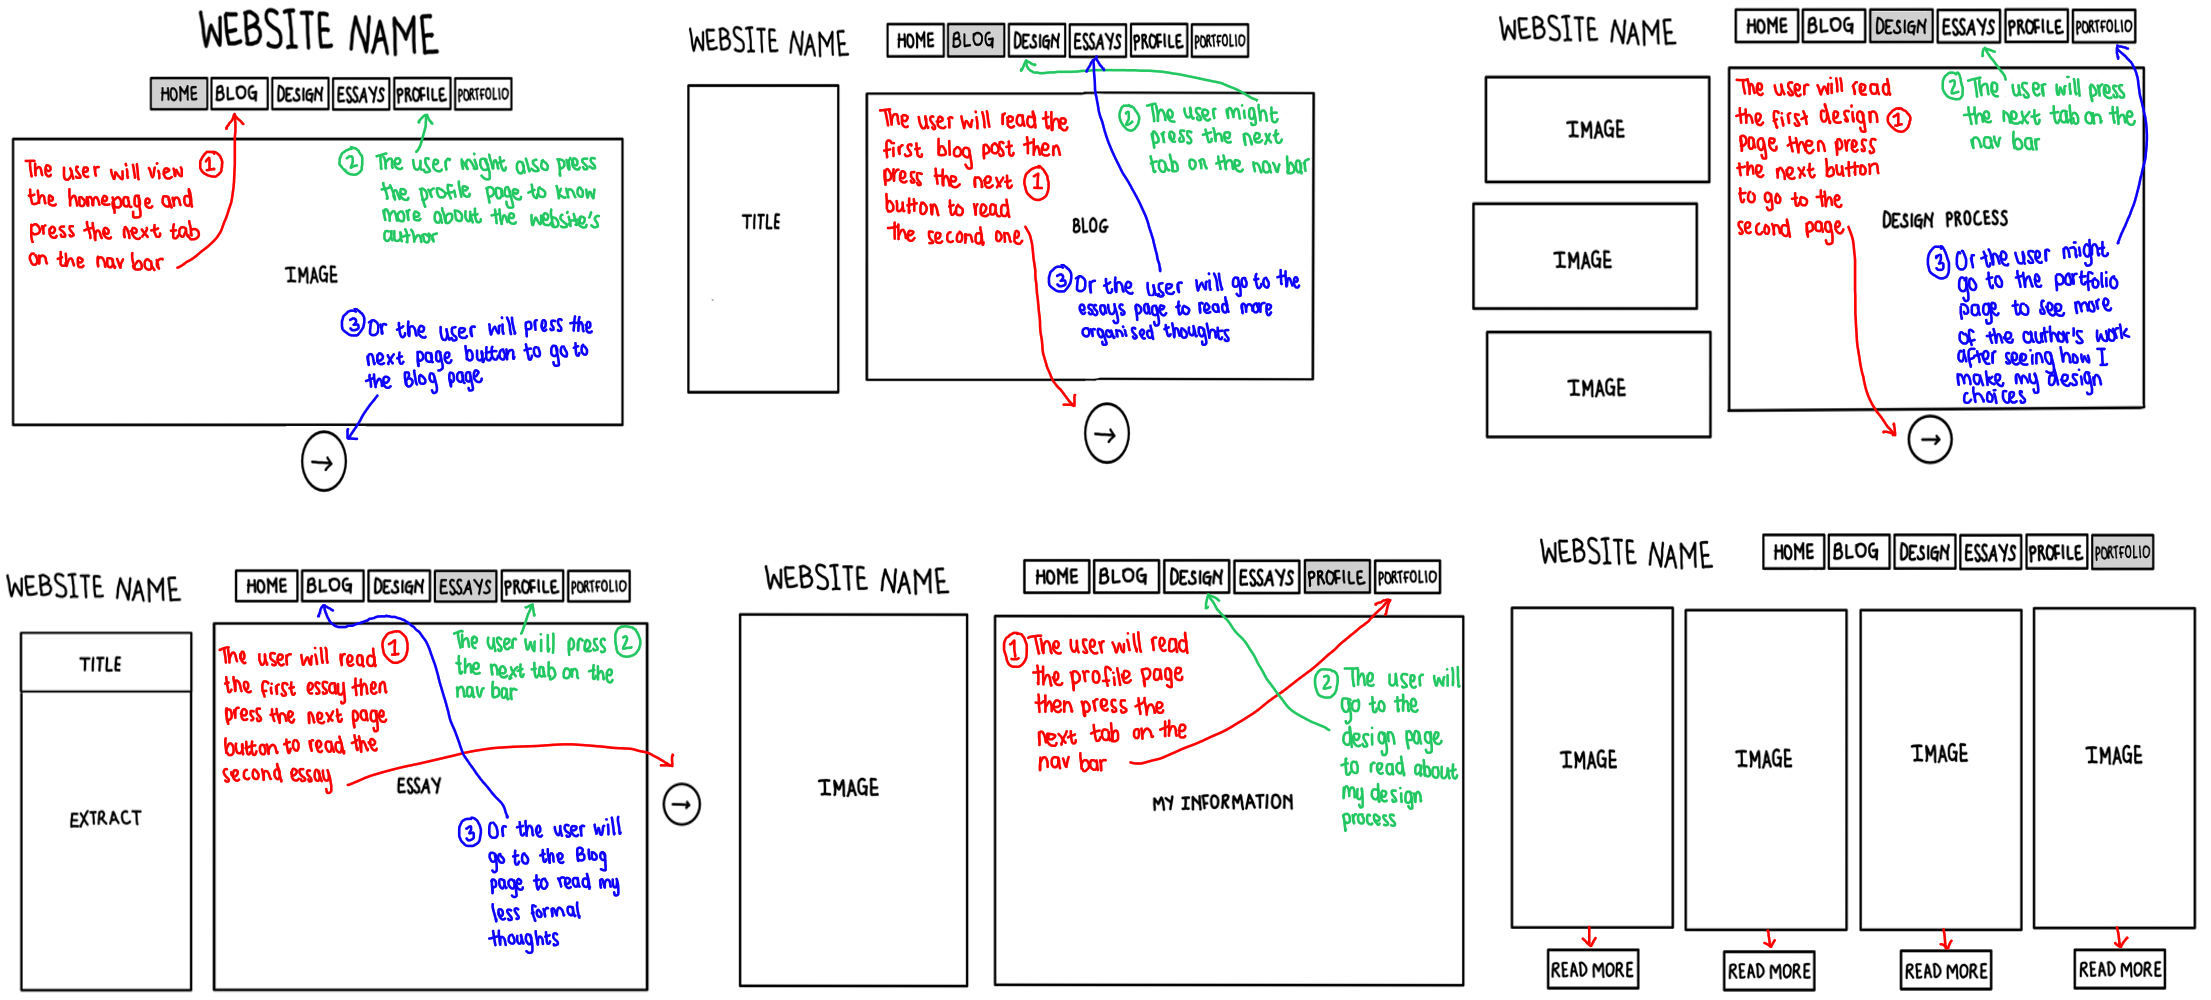 WEBSITE NAME
HOME BLOG DESIGN ESSAYS PROFILE PORTFOLIO
The user will view 1
the homepage and
press the next tab
on the nav bar
2 The user might also press
the profile page to know
more about the website's
author
IMAGE
3 Or the user will press the
next page button to go to
the Blog page
→
WEBSITE NAME
HOME BLOG DESIGN ESSAYS PROFILE PORTFOLIO
TITLE
The user will read the
first blog post then
press the next 1
button to read
the second one
2 The user might
press the next
tab on the nav bar
BLOG
3 Or the user will go to the
essays page to read more
organised thoughts
→
WEBSITE NAME
HOME BLOG DESIGN ESSAYS PROFILE PORTFOLIO
IMAGE
IMAGE
IMAGE
The user will read
the first design 1
page then press
the next button
to go to the
second page
2 The user will press
the next tab on the
nav bar
DESIGN PROCESS
3 Or the user might
go to the portfolio
page to see more
of the author's work
after seeing how I
make my design
choices
→
WEBSITE NAME
HOME BLOG DESIGN ESSAYS PROFILE PORTFOLIO
TITLE
EXTRACT
The user will read 1
the first essay then
press the next page
button to read the
second essay
The user will press 2
the next tab on the
nav bar
ESSAY
3 Or the user will
go to the Blog
page to read my
less formal
thoughts
→
WEBSITE NAME
HOME BLOG DESIGN ESSAYS PROFILE PORTFOLIO
IMAGE
1 The user will read
the profile page
then press the
next tab on the
nav bar
2 The user will
go to the
design page
to read about
my design
process
MY INFORMATION
WEBSITE NAME
HOME BLOG DESIGN ESSAYS PROFILE PORTFOLIO
IMAGE IMAGE IMAGE IMAGE
READ MORE READ MORE READ MORE READ MORE